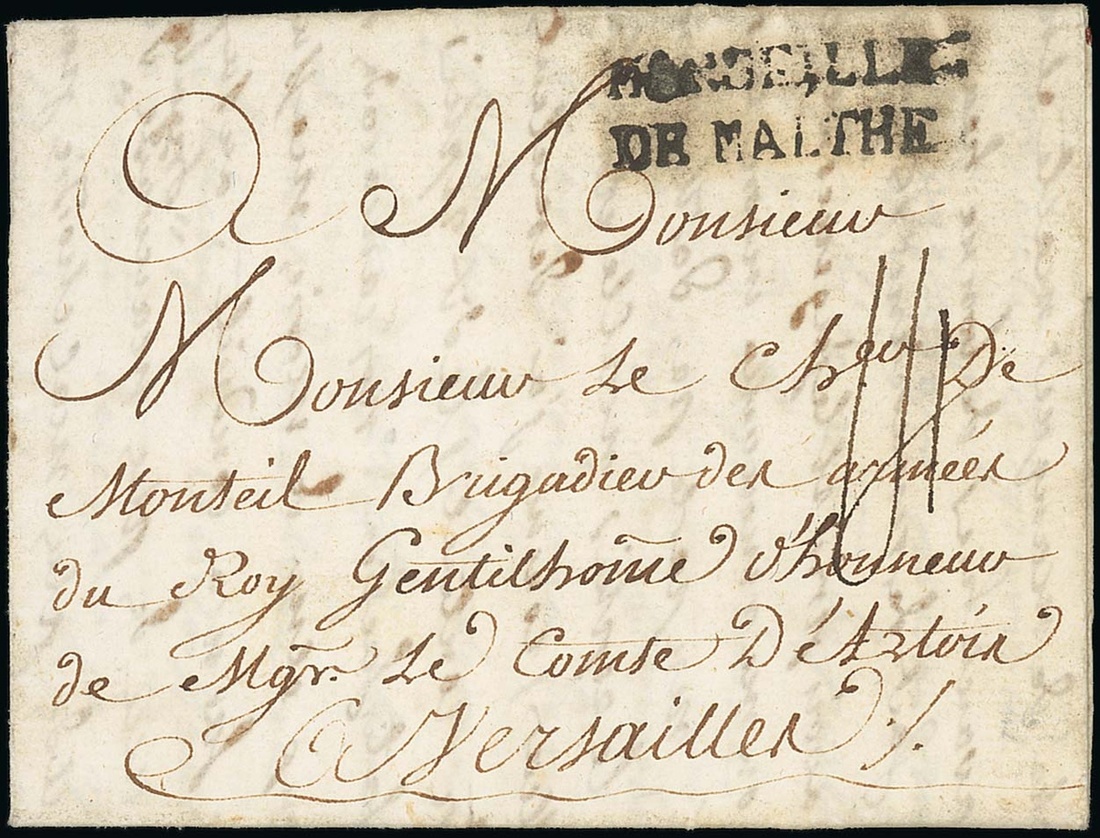 MARSEILLE
DE MALTHE
A Monsieur
Monsieur Le Cher De
Monteil Brigadier des armées
du Roy Gentilhome d'honneur
de Mgr. Le Comte D'Artois
A Versailles /.